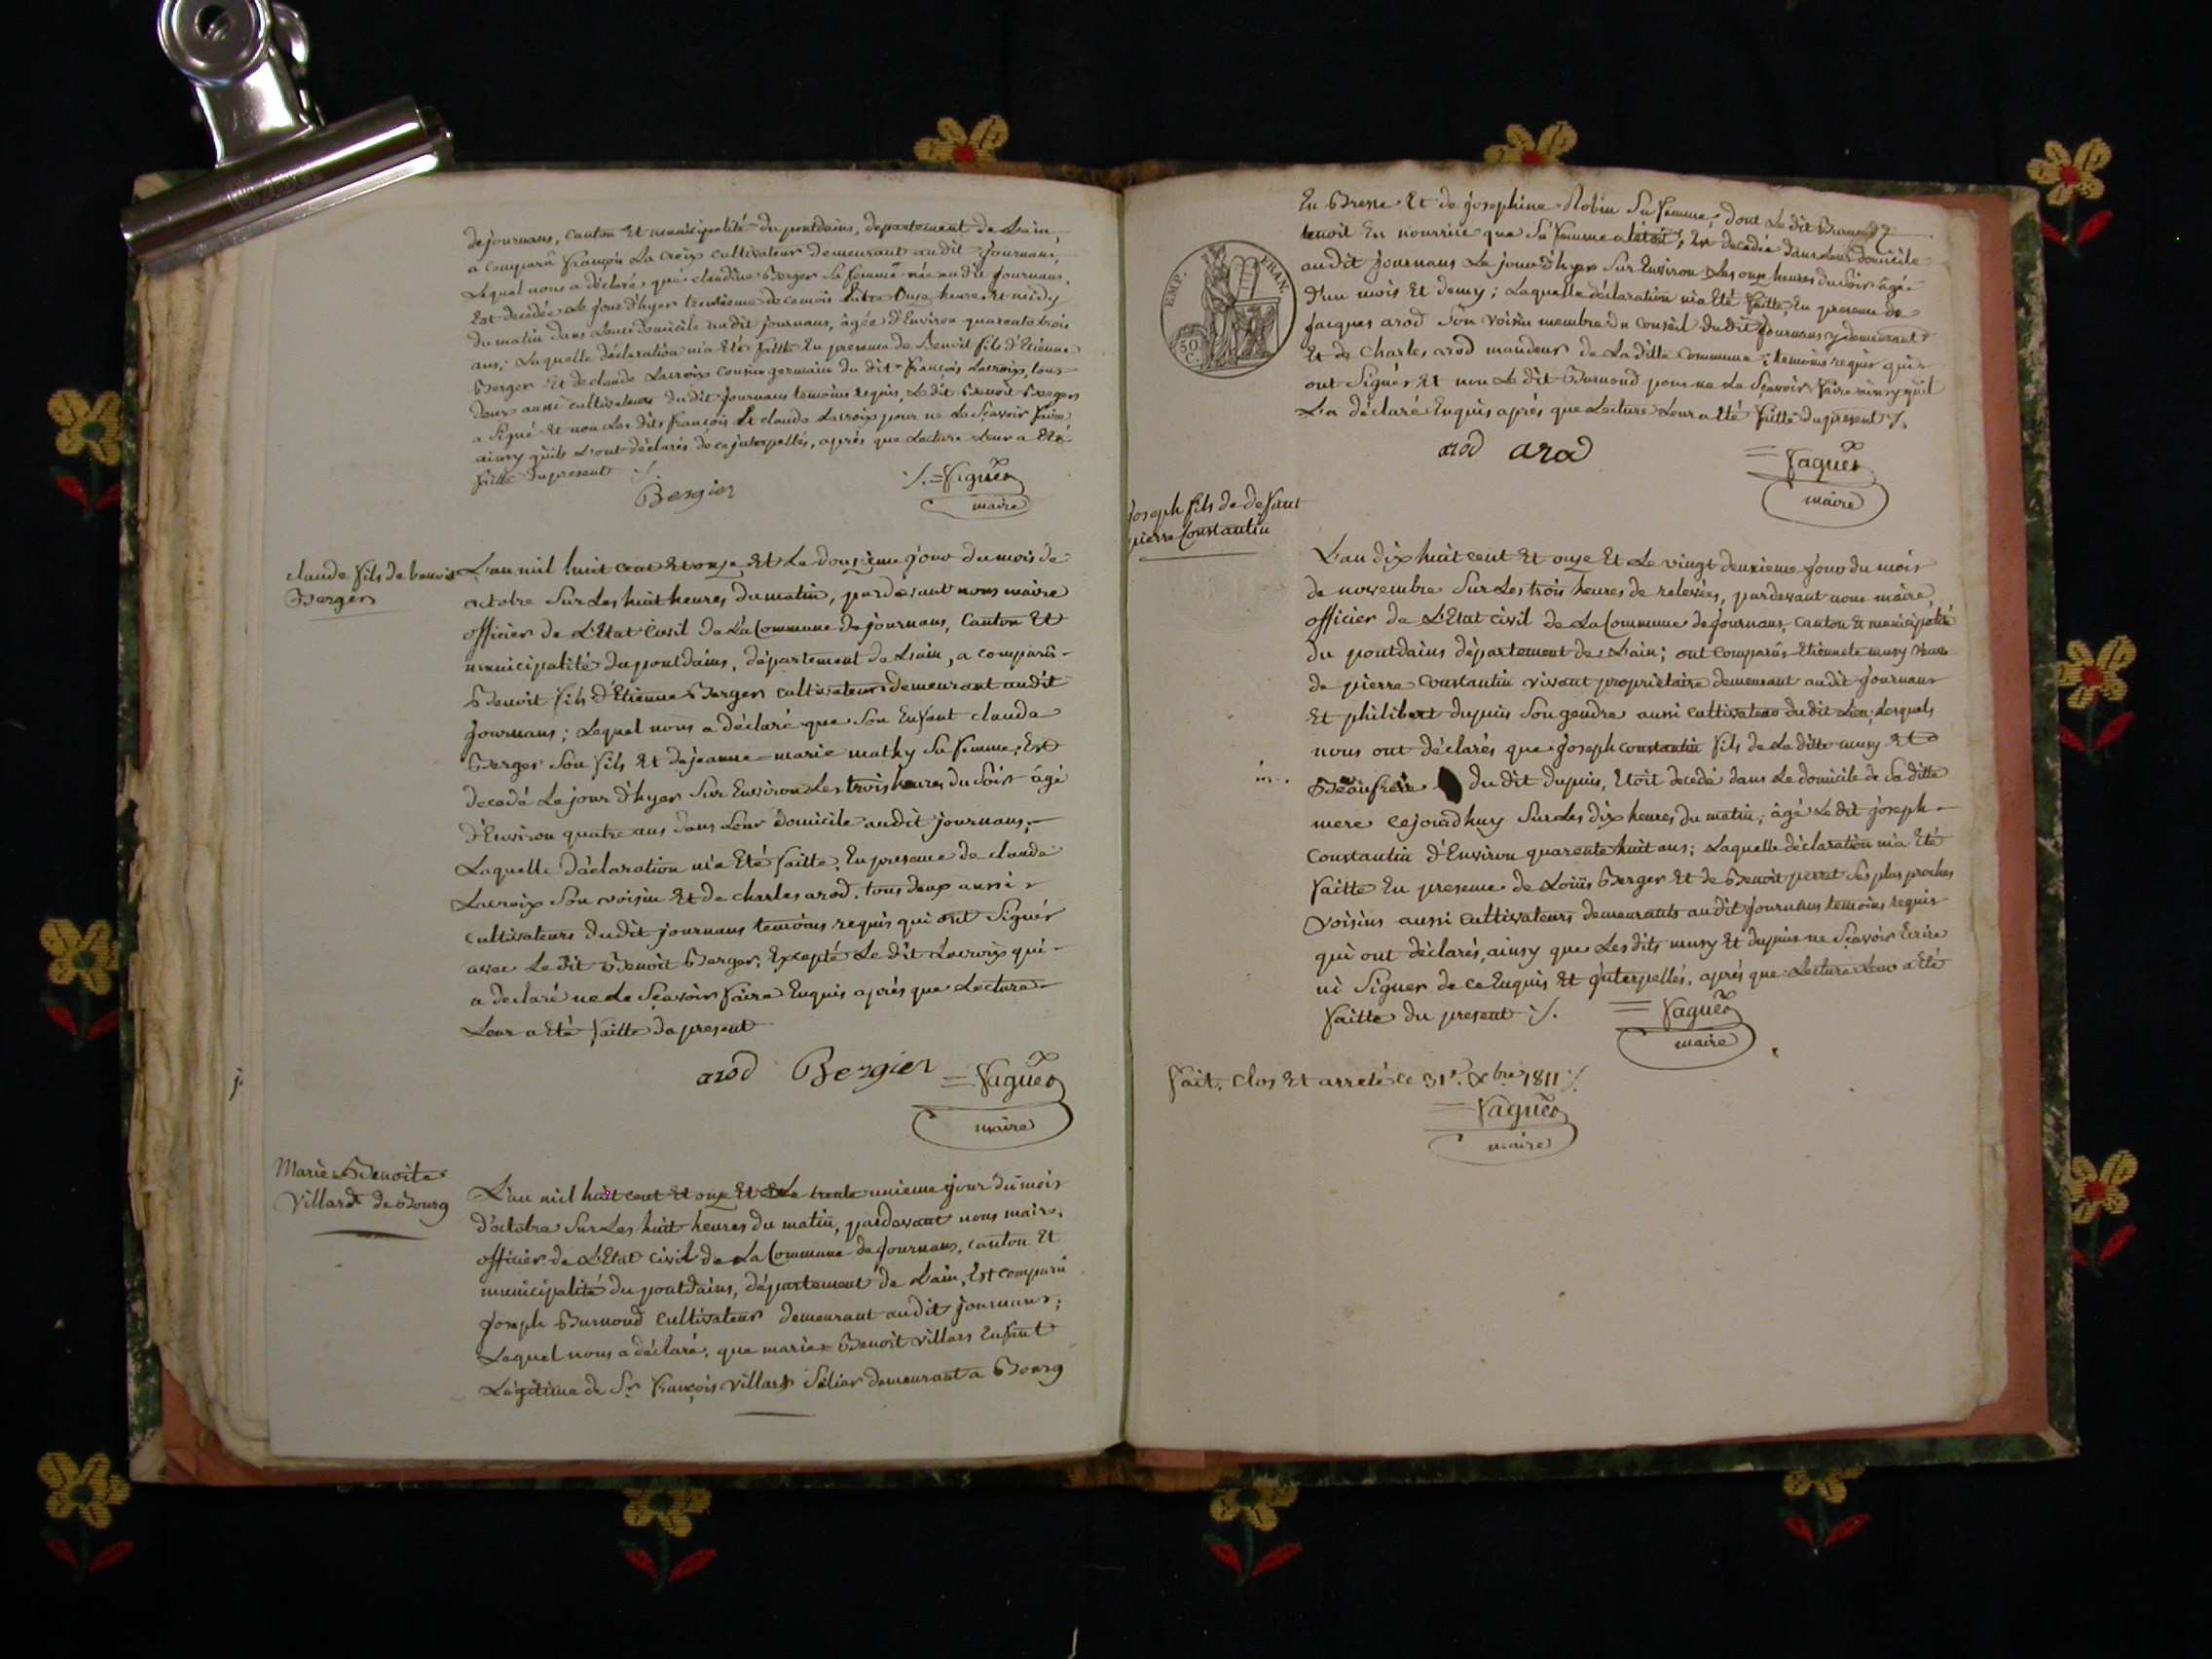 de journans, canton Et municipalité du pontdains, departement de Lain,
a comparû françois La croix cultivateur demeurant audit journans,
Lequel nous a déclaré que claudine Berger Sa femme née au dit journans,
Est decedée Le jour d'hyer trentieme de ce mois Entre Onze heures Et midy
du matin dans Leur domicile audit journans, âgée d'Environ quarente trois
ans; Laquelle déclaration m'a Eté faitte En presence de Benoit fils d'Etienne
Berger Et de claude Lacroix cousin germain du dit françois Lacroix, tous
deux aussi cultivateurs dudit journans temoins requis, Le dit Benoit Berger
a Signé Et non Les dits françois Et claude Lacroix pour ne Le Sçavoir faire
ainsy qu'ils L'ont déclarés de ce interpellés, après que Lecture Leur a Eté
faitte du present ./.
Bergier ./. = Vaguer
maire
claude fils de benoit
Berger
L'an mil huit cent Et onze Et Le douzieme jour du mois de
octobre Sur Les huit heures du matin, pardevant nous maire
officier de L'Etat Civil de La Commune de journans, Canton Et
municipalité du pontdains, département de Lain, a comparû
Benoit fils d'Etienne Berger cultivateur demeurant audit
journans; Lequel nous a déclaré que Son Enfant claude
Berger Son fils Et de jeanne-marie mathy Sa femme, Est
decedé Le jour d'hyer Sur Environ Les trois heures du Soir âgé
d'Environ quatre ans dans Leur domicile audit journans,
Laquelle déclaration m'a Eté faitte, En presence de claude
Lacroix Son voisin Et de charles arod, tous deux aussi
cultivateurs dudit journans temoins requis qui ont Signés
avec Le dit Benoit Berger, Excepté Le dit Lacroix qui
a declaré ne Le Sçavoir faire Enquis après que Lecture
Leur a Eté faitte du present
arod Bergier = Vaguer
maire
j.
Marie Benoite
Villard de Bourg
L'an mil huit cent Et onze Et Le trente unieme jour du mois
d'octobre Sur Les huit heures du matin, pardevant nous maire,
officier de L'Etat civil de La Commune de journans, canton Et
municipalité du pontdains, département de Lain, Est comparû
joseph Burnond cultivateur demeurant audit journans;
Lequel nous a déclaré, que marie-Benoit villars Enfant
Légitime de Sr françois villars Sélier demeurant a Bourg
EMP. FRAN.
50
C.
En Bresse Et de josephine Robin Sa femme, dont Le dit Burnond
tenoit En nourrice que Sa femme alaitoit, Est decedée dans Leur domicile
audit journans Le jour d'hyer Sur Environ Les onze heures du Soir âgé
d'un mois Et demy; Laquelle déclaration m'a Eté faitte, En presence de
jacques arod Son voisin membre du Conseil dudit journans y demeurant
Et de Charles arod mandeur de La ditte Commune, temoins requis qui
ont Signés Et non Le dit Burnond pour ne Le Sçavoir faire ainsy qu'il
L'a déclaré Enquis après que Lecture Leur a Eté faitte du present ./.
arod arod = Vaguer
maire
joseph fils de defunt
pierre Constantin
L'an dix huit cent Et onze Et Le vingt deuxieme jour du mois
de novembre Sur Les trois heures de relevées, pardevant nous maire,
officier de L'Etat civil de La Commune de journans, canton Et municipalité
du pontdains département de Lain; ont comparûs Etiennete musy veuve
de pierre constantin vivant proprietaire demeurant audit journans
Et philibert dupuis Son gendre aussi cultivateur dudit Lieu; Lesquels
nous ont déclarés que joseph constantin fils de La ditte musy Et
Beaufrere du dit dupuis, Etoit decedé dans Le domicile de Sa ditte
mere cejourdhuy Sur Les dix heures du matin, âgé Le dit joseph
constantin d'Environ quarente huit ans; Laquelle déclaration m'a Eté
faitte En presence de Loüis Berger Et de Benoit perret Ses plus proches
voisins aussi cultivateurs demeurants audit journans temoins requis
qui ont déclarés, ainsy que Les dits musy Et dupuis ne Sçavoir Ecrire
ni Signer de ce Enquis Et interpellés, après que Lecture Leur a Eté
faitte du present ./. = Vaguer
maire
fait, clos Et arreté ce 31e. Xbre 1811 ./.
= Vaguer
maire